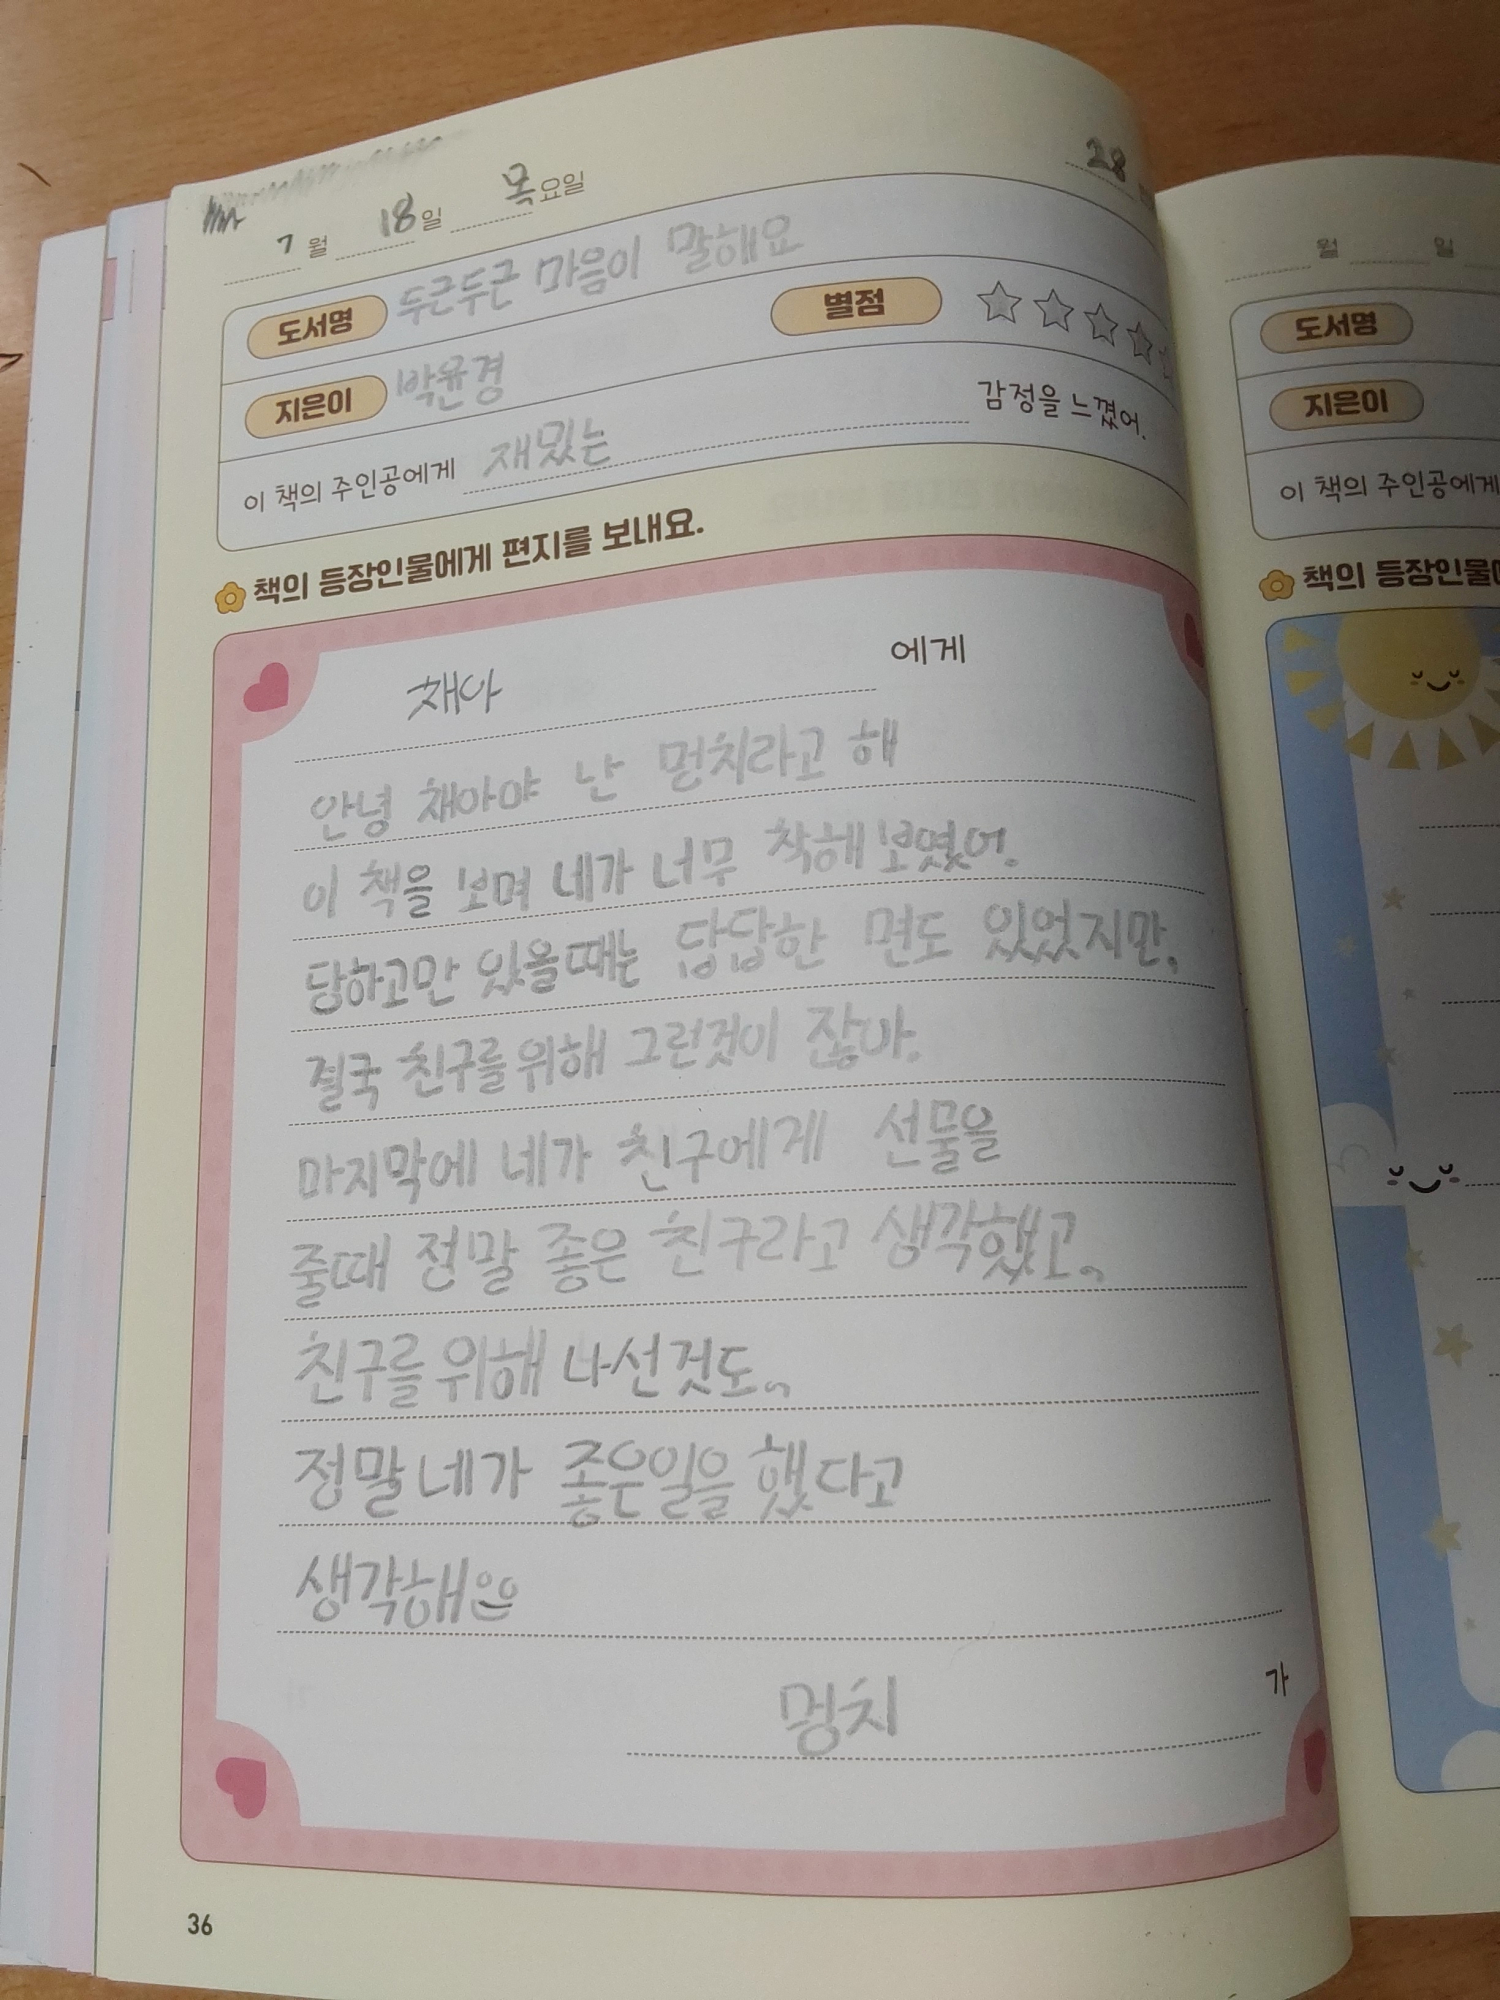 7 월 18 일 목 요일
28
도서명 두근두근 마음이 말해요
별점
지은이 박윤경
이 책의 주인공에게 재밌는 감정을 느꼈어.
책의 등장인물에게 편지를 보내요.
채아 에게
안녕 채아야 난 멍치라고 해
이 책을 보며 네가 너무 착해 보였어.
당하고만 있을때는 답답한 면도 있었지만,
결국 친구를 위해 그런것이 잖아.
마지막에 네가 친구에게 선물을
줄때 정말 좋은 친구라고 생각했고,,
친구를 위해 나선것도,,
정말 네가 좋은일을 했다고
생각해
멍치 가
36
월 일
도서명
지은이
이 책의 주인공에게
책의 등장인물